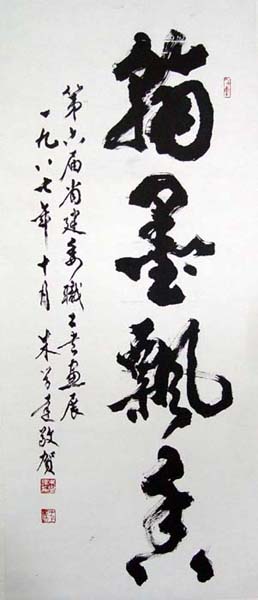 翰墨飘香
第六届省建委职工书画展
一九八七年十月 朱学达敬贺